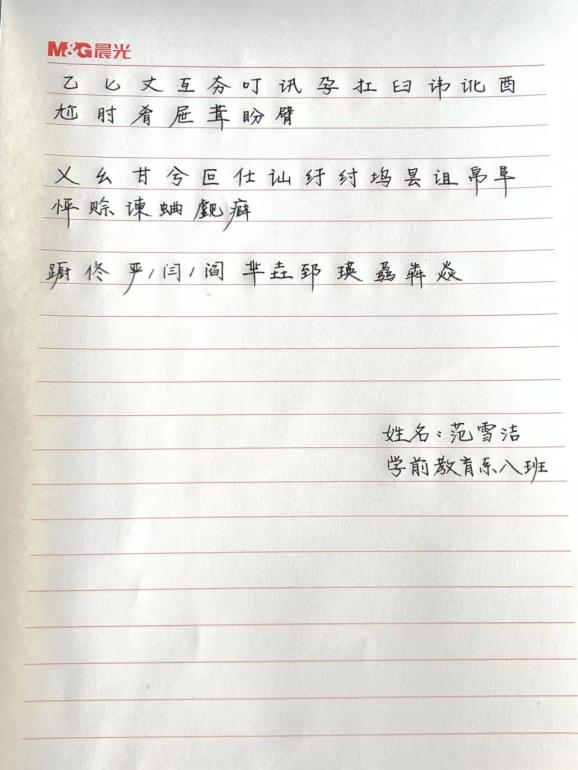 M&G晨光
乙 匕 丈 互 夯 叮 讯 孕 扛 臼 讳 讹 酉
尬 肘 肴 屉 茸 盼 臂
乂 幺 甘 兮 叵 仕 讪 纡 纣 坞 昙 诅 帛 阜
怦 赊 谏 蛐 觑 癖
蹰 佟 严/闫/阎 芈 垚 郅 瑛 骉 犇 焱
姓名:范雪洁
学前教育系八班